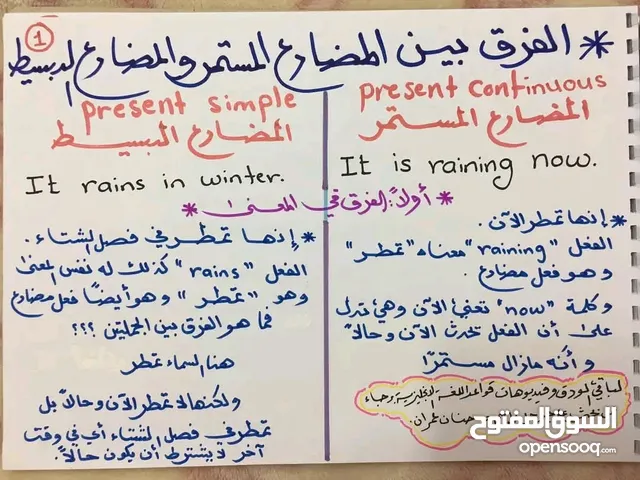 1
* الفرق بين المضارع المستمر والمضارع البسيط
present continuous
المضارع المستمر
It is raining now.
present simple
المضارع البسيط
It rains in winter.
* أولاً: الفرق في المعنى *
إنها تمطر الآن.
الفعل "raining" معناه "تمطر"
وهو فعل مضارع.
وكلمة "now" تعني الآن وهي تدل
على أن الفعل تحدث الآن وحالاً
وأنه مازال مستمرًا
لباقي المودق وفيديوهات قواعد اللغة الإنجليزية رجاء
حنان عمران.
* إنها تمطر في فصل الشتاء.
الفعل "rains" كذلك له نفس المعنى
وهو "تمطر" وهو أيضًا فعل مضارع
فما هو الفرق بين الجملتين ؟؟؟
هنا السماء تمطر
ولكنها لا تمطر الآن وحالاً بل
تمطر في فصل الشتاء أي في وقت
آخر لا يشترط أن يكون حالاً.
السوق المفتوح
opensooq.com